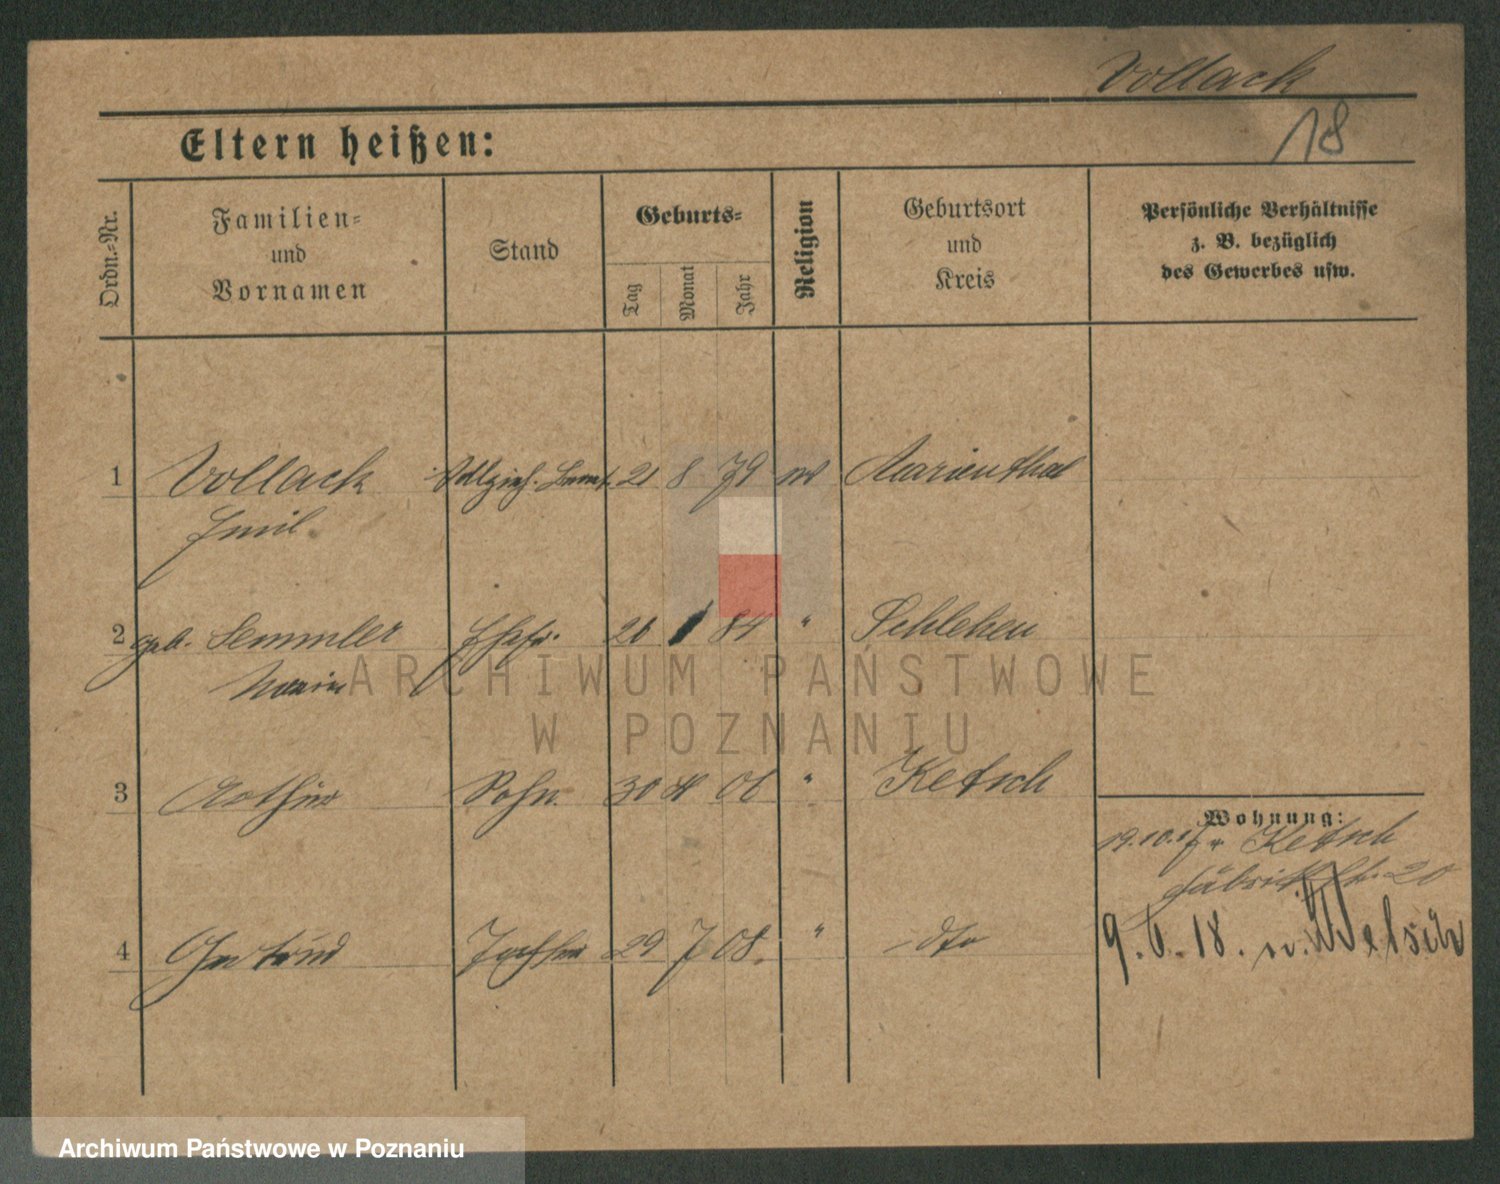 Vollack
18
Eltern heißen:
Ordn.-Nr.
Familien-
und
Vornamen
Stand
Geburts-
Tag
Monat
Jahr
Religion
Geburtsort
und
Kreis
Persönliche Verhältnisse
z. B. bezüglich
des Gewerbes usw.
1 Vollack 21 8 79 Marienthal
Emil
2 geb. Semmler Ehefr. 26 84 " Schlehen
Maria
ARCHIWUM PAŃSTWOWE
W POZNANIU
3 Arthur Sohn 30 06 " Ketsch
Wohnung:
19.10.17 v. Ketsch
Fabrikstr. 20
4 Gertrud Tochter 29 7 08. " dto
9. 6. 18. n.
Archiwum Państwowe w Poznaniu